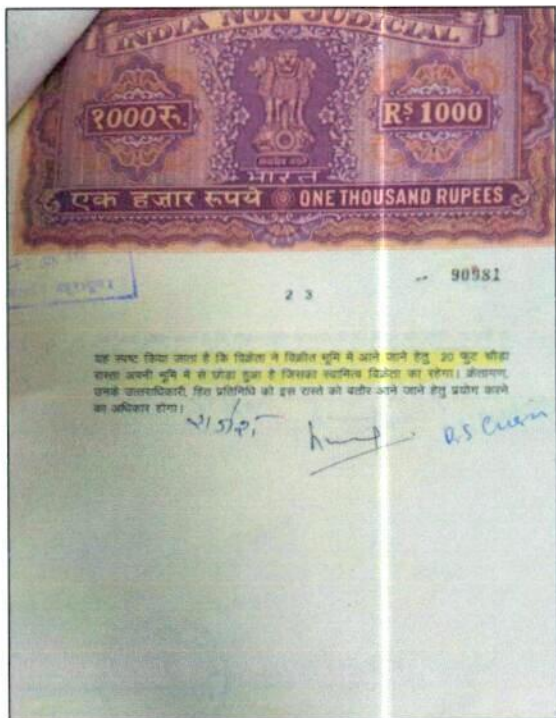 INDIA NON JUDICIAL
१000रु.
RS 1000
सत्यमेव जयते
भारत
एक हजार रूपये ONE THOUSAND RUPEES
90981
2 3
यह स्पष्ट किया जाता है कि विक्रेता ने विक्रीत भूमि में आने जाने हेतु 20 फुट चौड़ा
रास्ता अपनी भूमि में से छोडा हुआ है जिसका स्वामित्व विक्रेता का रहेगा। क्रेतागण,
उनके उत्तराधिकारी, हित प्रतिनिधि को इस रास्ते को बतौर आने जाने हेतु प्रयोग करने
का अधिकार होगा।